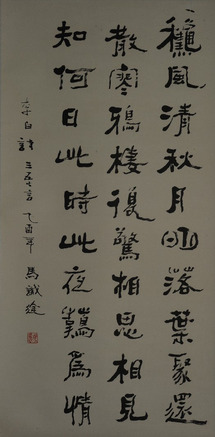 秋風清秋月明落葉聚還
散寒鴉棲復驚相思相見
知何日此時此夜難為情
李白詩三五七言 乙酉年 馬識途